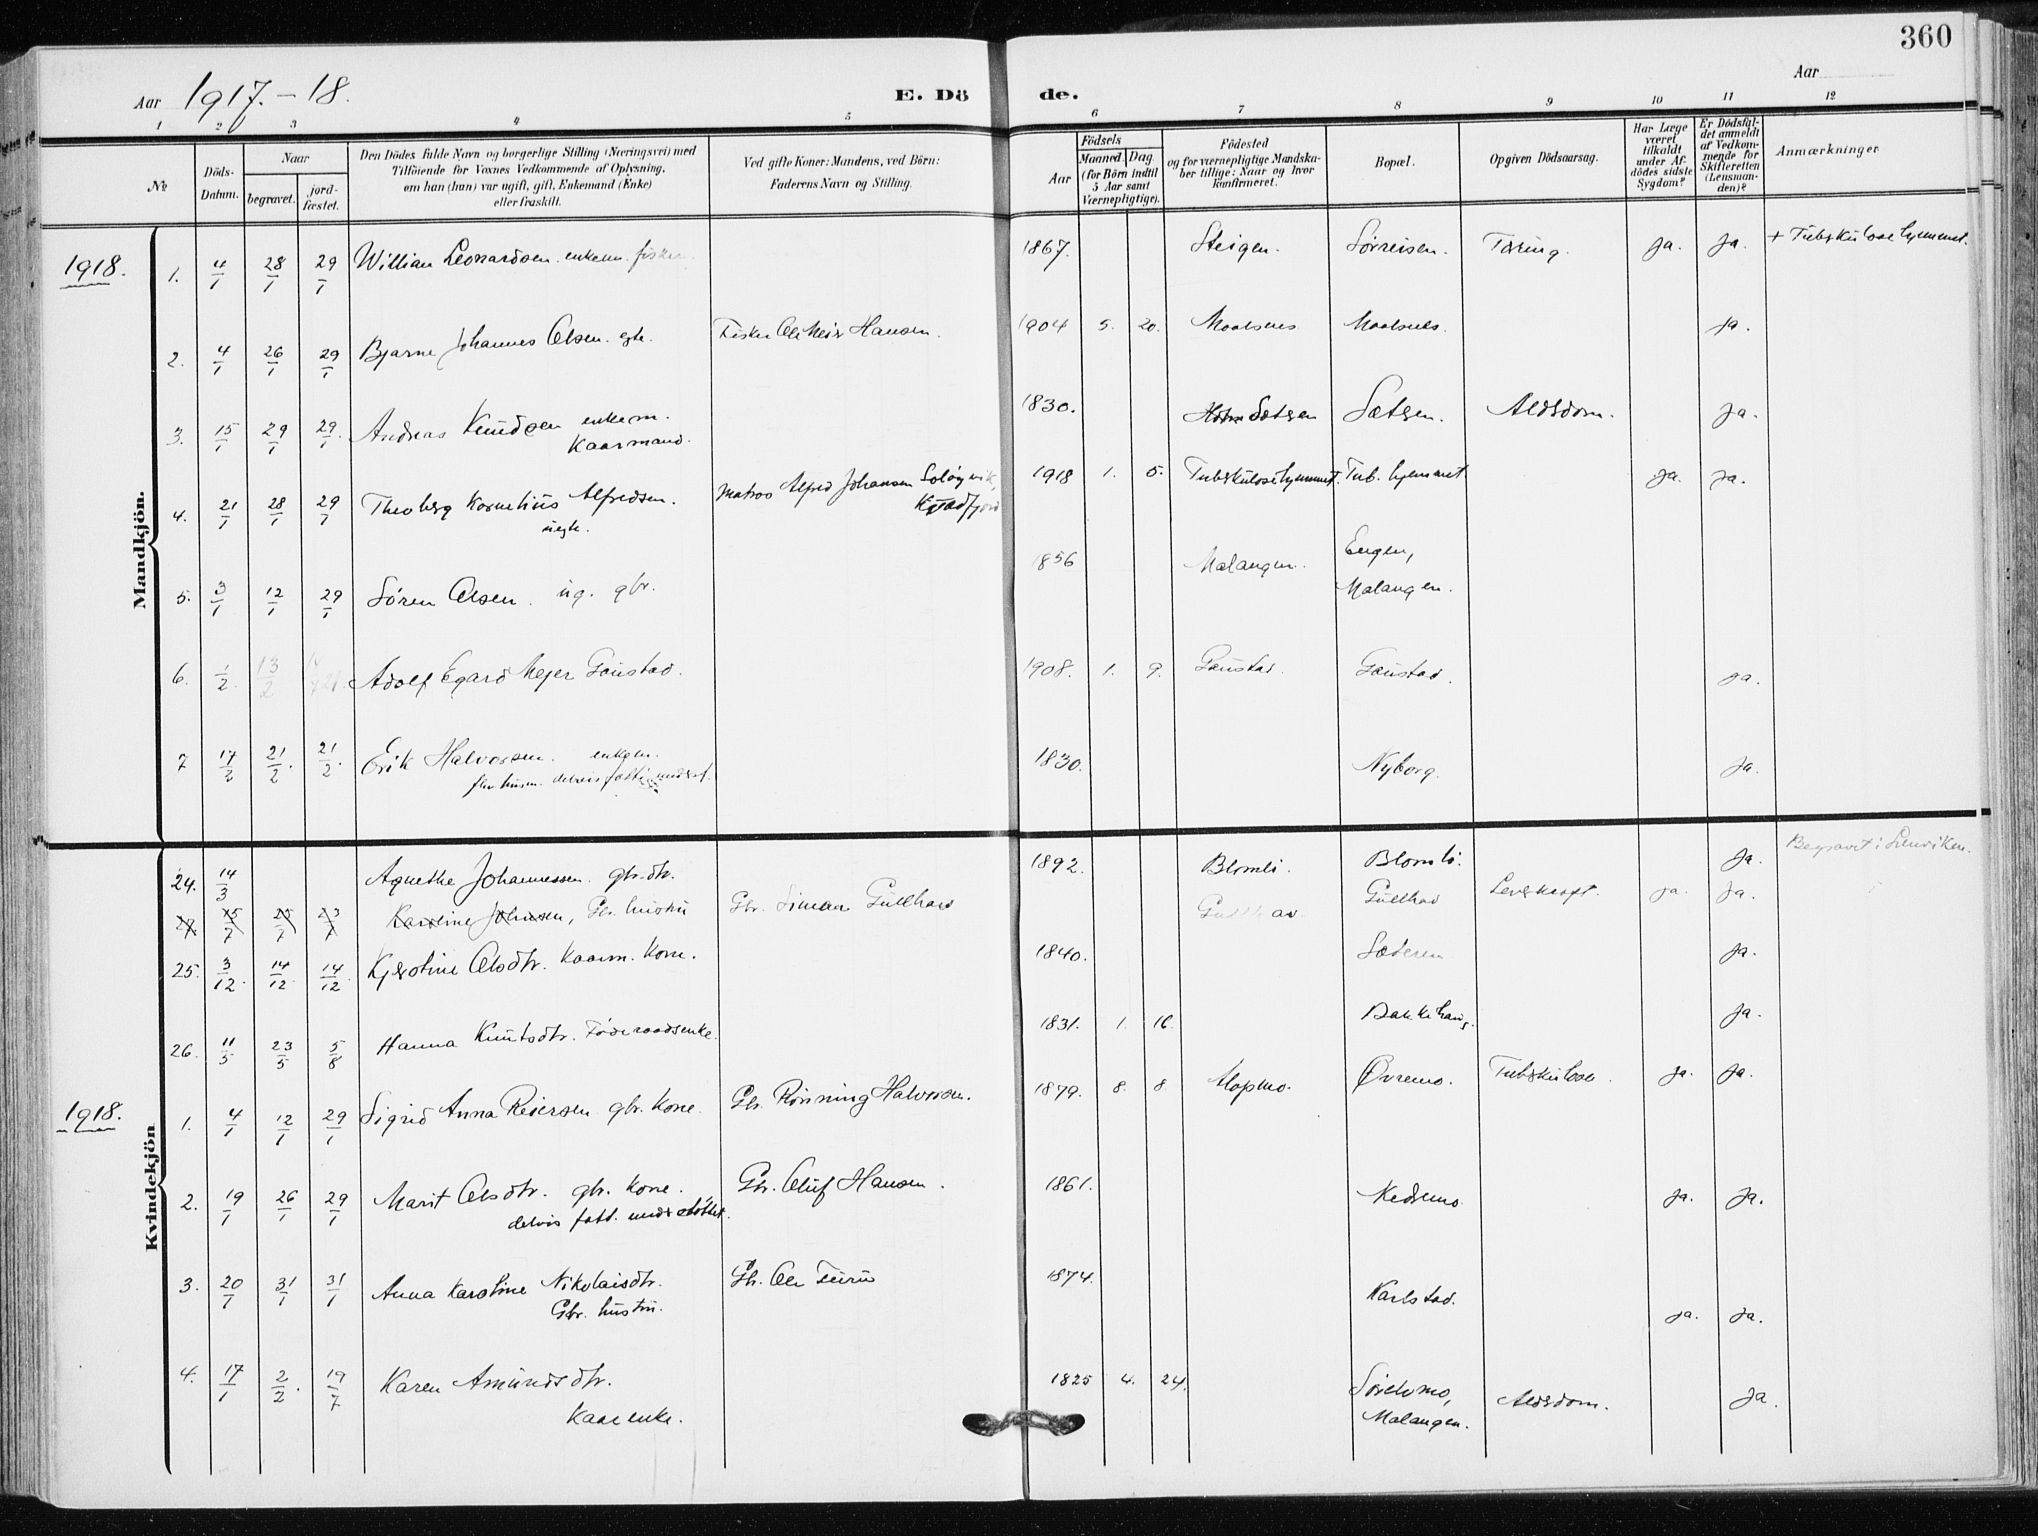 360
Aar 1917.-18.
E. Döde.
Aar
1 2 3 4 5 6 7 8 9 10 11 12
№
Döds-Datum.
Naar
begravet.
jord-fæstet.
Den Dödes fulde Navn og borgerlige Stilling (Næringsvei) med
Tilföiende for Voxnes Vedkommende af Oplysning,
om han (hun) var ugift, gift, Enkemand (Enke)
eller fraskilt.
Ved gifte Koner: Mandens, ved Börn:
Faderens Navn og Stilling.
Födsels
Aar
Maaned Dag
(for Börn indtil
5 Aar samt
Værnepligtige).
Födested
og for værnepligtige Mandska-
ber tillige: Naar og hvor
konfirmeret.
Bopæl.
Opgiven Dödsaarsag.
Har Læge
været
tilkaldt
under Af-
dödes sidste
Sygdom?
Er Dödsfal-
det anmeldt
af Vedkom-
mende for
Skifteretten
(Lensman-
den)?
Anmærkninger
Mandkjön.
1918.
1. 4/1 28/1 29/1 Willian Leonardsen. enkem. fisker 1867. Steigen. Sørreisen. Tæring. ja. ja. + Tuberkulosehjemmet.
2. 4/1 26/1 29/1 Bjarne Johannes Olsen. egte. Fisker Ole Meier Hansen. 1904 5. 20. Maalsnes Maalsnes. ja.
3. 15/1 29/1 29/1 Andreas Knudsen enkem. 1830. Sætsen Sætsen. Aldsdom. ja.
Kaarmand.
4. 21/1 28/1 29/1 Theoberg Kornelius Alfredsen. Matros Alfred Johansen 1918 1. 5. Tuberkulosehjemmet. Tub. hjemmet ja. ja.
uegte.
5. 3/1 12/1 29/1 Søren Olsen. ug. gbr. 1856 Malangen. Engen,
Malangen.
6. 1/2 13/2 Adolf Egard Mejer Gaustad. 1908. 1. 9. Gaustad. Gaustad. ja.
7 17/2 21/2 21/2 Erik Halvorsen. enkem. 1830. Nyborg. ja.
Kvindekjön
24. 14/3 Agnethe Johannessen. gbr. dtr. 1892. Blomli. Blomli. ja. Begravet i Lenviken.
27. 15/7 25/7 23/7 Karoline Johnsen, Gbr. hustru Gbr. Simon Gullhav Gullhav Gullhav ja. ja.
25. 3/12 14/12 14/12 Kjerstine Olsdtr. Kaarm. Kone. 1840. Sæteren ja.
26. 11/5 23/5 5/8 Hanna Knutsdtr. Føderaadsenke. 1831. 1. 16. Bakkehaug. ja.
1918.
1. 4/1 12/1 29/1 Sigrid Anna Reiersen gbr. Kone. Gbr. Rønning Halvorsen. 1879. 8. 8. Mopmo. Øvremo. Tuberkulose ja. ja.
2. 19/1 26/1 29/1 Marit Olsdtr. gbr. Kone. Gbr. Oluf Hansen. 1861. Kedemo ja. ja.
delvis fatt. understøttet.
3. 20/1 31/1 31/1 Anna Karoline Nikolaisdtr. Gbr. Ole 1874. Karlstad. ja. ja.
Gbr. hustru.
4. 17/1 2/2 19/7 Karen Amundsdtr. 1825 4. 24. Malangen. Aldsdom. ja.
Kaarenke.